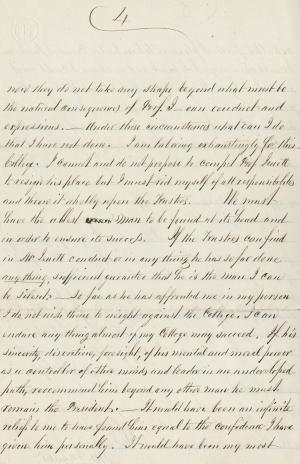 4
now they do not take any shape beyond what must be
the natural consequences of Prof. J— own conduct and
expressions. — Under these circumstances what can I do
that I have not done. I am laboring exhaustingly for this
College. I cannot and do not propose to compel Prof. Jewett
to resign his place but I must rid myself of all responsibilities
and throw it wholly upon the Trustees. We must
have the ablest man to be found at its head and
in order to ensure its success. If the Trustees can find
in Mr. Jewett conduct or in any thing he has so far done
any thing, sufficient guarantee that he is the man I can
be silent; — So far as he has affronted me in my person
I do not wish them to weight against the College. I can
endure any thing almost if my College may succeed. If his
sincerity, discretion, foresight, if his mental and moral power
as a controller of other minds and leader in an undeveloped
path, recommend him beyond any other man he must
remain the President. — It would have been an infinite
relief to me to have found him equal to the confidence I have
given him personally. It would have been my most